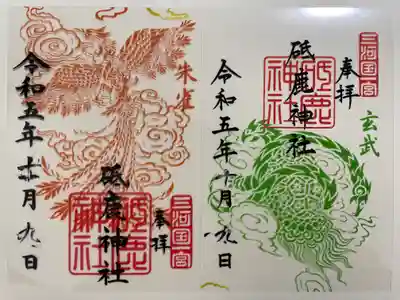 朱雀
三河国一宮
奉拝
砥鹿神社
砥鹿
神社
令和五年
月九日
三河国一宮
奉拝
玄武
砥鹿神社
砥鹿
神社
令和五年十月九日